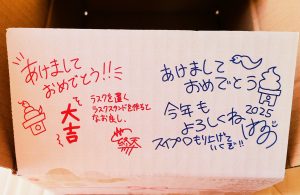 あけまして
おめでとう!!
大吉
ラスクを置く
ラスクスタンドを作ると
なお良し。
あけまして
おめでとう
2025
今年も
よろしくね
もり上げて
いくぞ!!